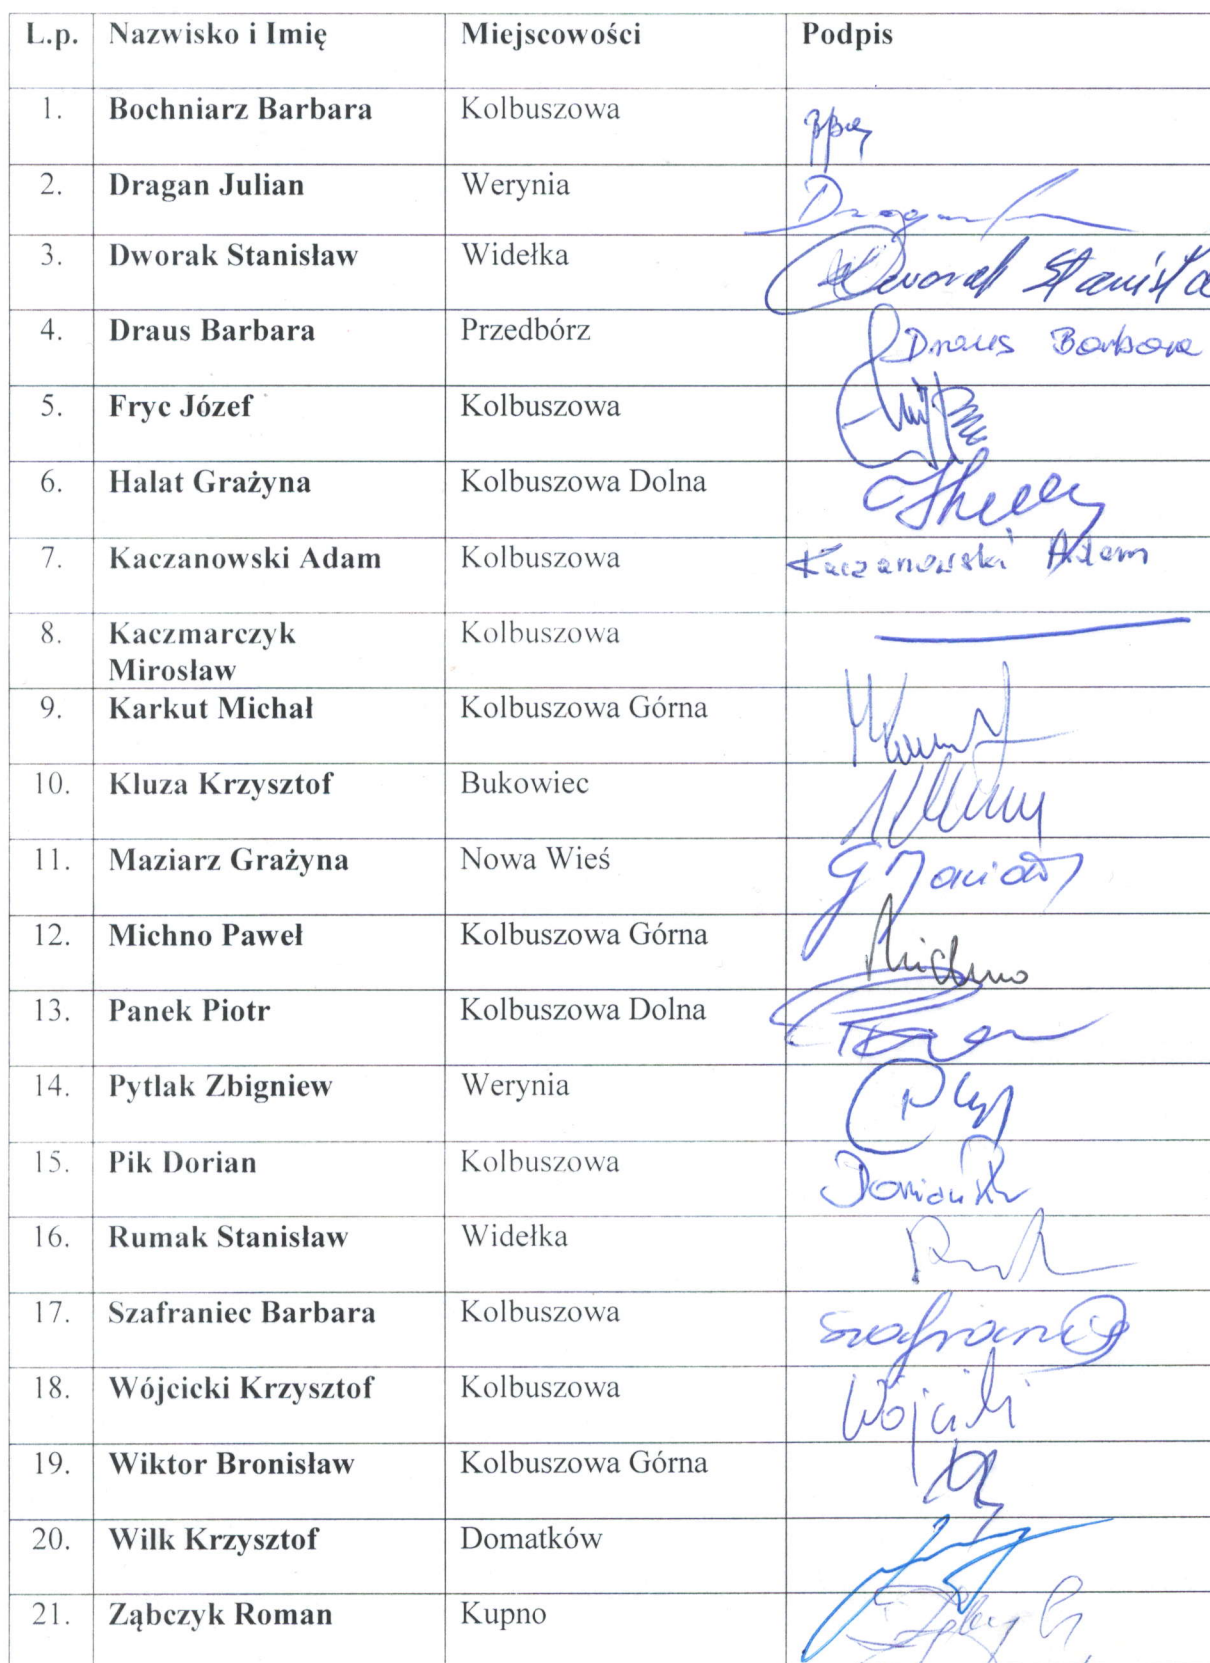 L.p. Nazwisko i Imię Miejscowości Podpis
1. Bochniarz Barbara Kolbuszowa
2. Dragan Julian Werynia Dragan
3. Dworak Stanisław Widełka Dworak Stanisła
4. Draus Barbara Przedbórz Draus Barbara
5. Fryc Józef Kolbuszowa
6. Halat Grażyna Kolbuszowa Dolna
7. Kaczanowski Adam Kolbuszowa Kaczanowski Adam
8. Kaczmarczyk Kolbuszowa
Mirosław
9. Karkut Michał Kolbuszowa Górna
10. Kluza Krzysztof Bukowiec
11. Maziarz Grażyna Nowa Wieś
12. Michno Paweł Kolbuszowa Górna Michno
13. Panek Piotr Kolbuszowa Dolna
14. Pytlak Zbigniew Werynia
15. Pik Dorian Kolbuszowa Dorian
16. Rumak Stanisław Widełka
17. Szafraniec Barbara Kolbuszowa Szafraniec
18. Wójcicki Krzysztof Kolbuszowa Wójcicki
19. Wiktor Bronisław Kolbuszowa Górna
20. Wilk Krzysztof Domatków
21. Ząbczyk Roman Kupno